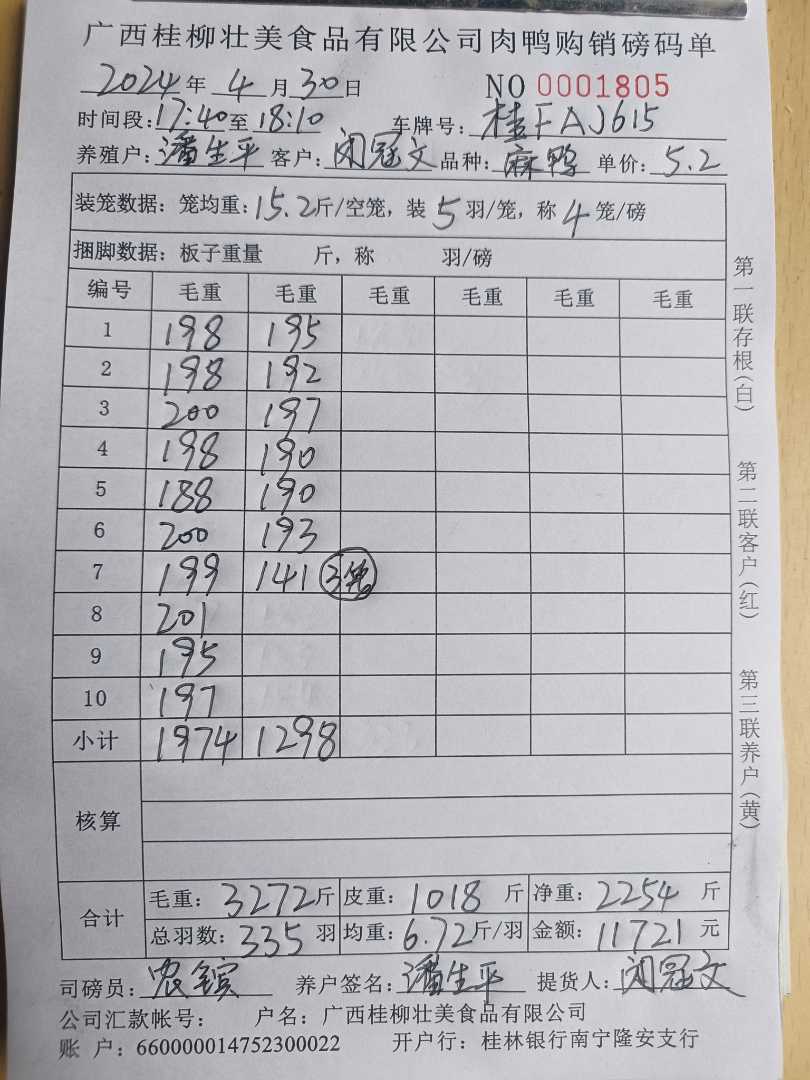 广西桂柳壮美食品有限公司肉鸭购销磅码单
2024年4月30日 NO 0001805
时间段:17:40至18:10 车牌号:桂FAJ615
养殖户:潘生平 客户:闭冠文 品种:麻鸭 单价:5.2
装笼数据:笼均重:15.2斤/空笼,装5羽/笼,称4笼/磅
捆脚数据:板子重量 斤,称 羽/磅
编号 毛重 毛重 毛重 毛重 毛重 毛重
1 198 195
2 198 192
3 200 197
4 198 190
5 188 190
6 200 193
7 199 141 3笼
8 201
9 195
10 197
小计 1974 1298
核算
合计 毛重:3272斤 皮重:1018斤 净重:2254斤
总羽数:335羽 均重:6.72斤/羽 金额:11721元
司磅员:农镔 养户签名:潘生平 提货人:闭冠文
公司汇款帐号: 户名:广西桂柳壮美食品有限公司
账 户:660000014752300022 开户行:桂林银行南宁隆安支行
第一联存根(白) 第二联客户(红) 第三联养户(黄)